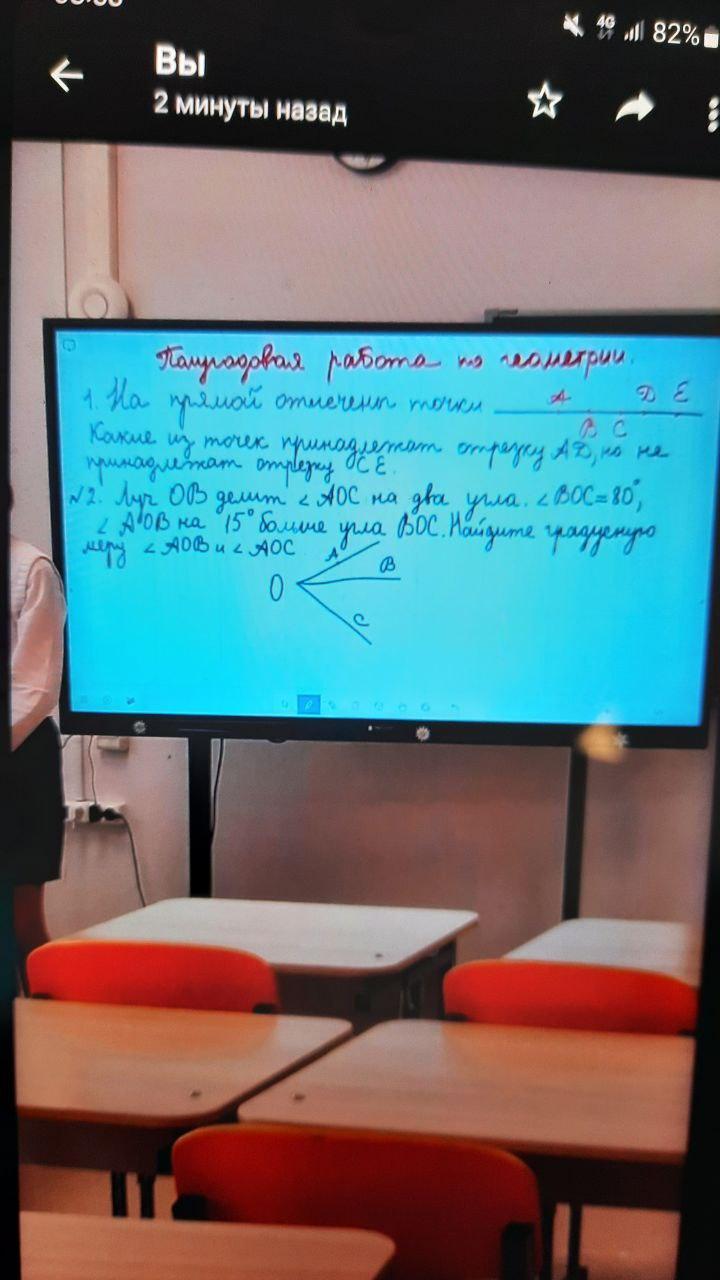 4G 82%
Вы
2 минуты назад
Полугодовая работа по геометрии.
1. На прямой отмечены точки A D E
B C
Какие из точек принадлежат отрезку AD, но не
принадлежат отрезку CE.
№2. Луч OB делит ∠AOC на два угла. ∠BOC=80°,
∠AOB на 15° больше угла BOC. Найдите градусную
меру ∠AOB и ∠AOC
A
B
O
C